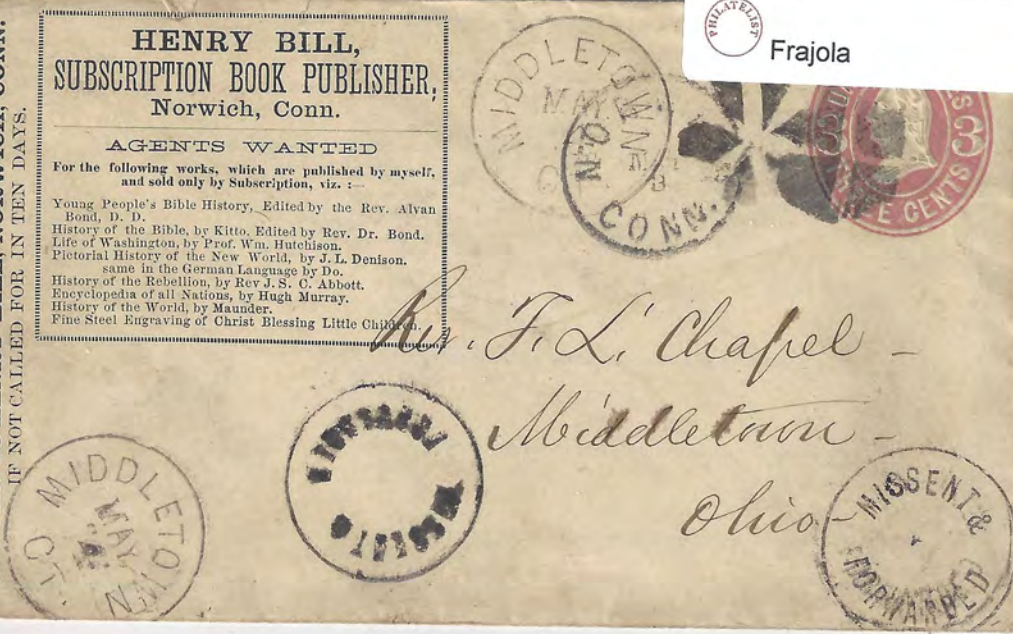 PHILATELIST
Frajola
HENRY BILL,
SUBSCRIPTION BOOK PUBLISHER,
Norwich, Conn.
AGENTS WANTED
For the following works, which are published by myself,
and sold only by Subscription, viz. :—
Young People's Bible History, Edited by the Rev. Alvan
Bond, D. D.
History of the Bible, by Kitto. Edited by Rev. Dr. Bond.
Life of Washington, by Prof. Wm. Hutchison.
Pictorial History of the New World, by J. L. Denison.
same in the German Language by Do.
History of the Rebellion, by Rev J. S. C. Abbott.
Encyclopedia of all Nations, by Hugh Murray.
History of the World, by Maunder.
Fine Steel Engraving of Christ Blessing Little Children.
NORWICH, CONN.
IF NOT CALLED FOR IN TEN DAYS.
MIDDLETOWN
MAY
CONN.
3
CENTS
Rev. F. L. Chapel -
Middletown -
Ohio -
MIDDLETOWN
MAY
CT
MISSENT &
FORWARDED